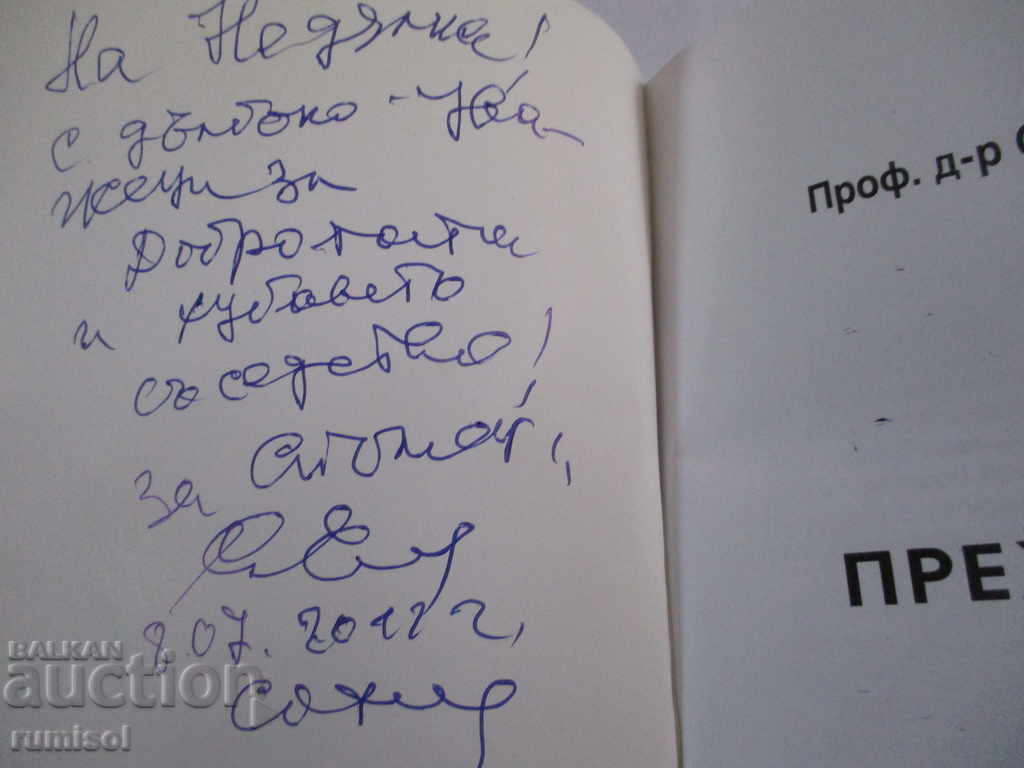 На Недялка!
с дълбоко ува-
жение за
добротата
и хубавето
съседство!
за
8.07.2012 г.
София
Проф. д-р
ПРЕ
BALKAN
auction
rumisol